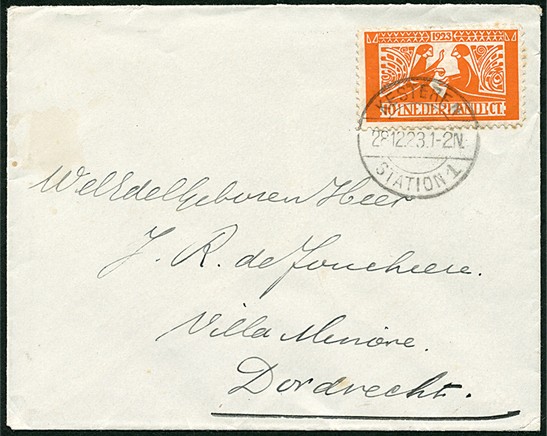 1923
10+5 NEDERLAND 10 CT
KESTEREN
28.12.23.1-2N
STATION 1
WelEdelGeboren Heer
J. R. de Joncheere.
Villa Minore.
Dordrecht.